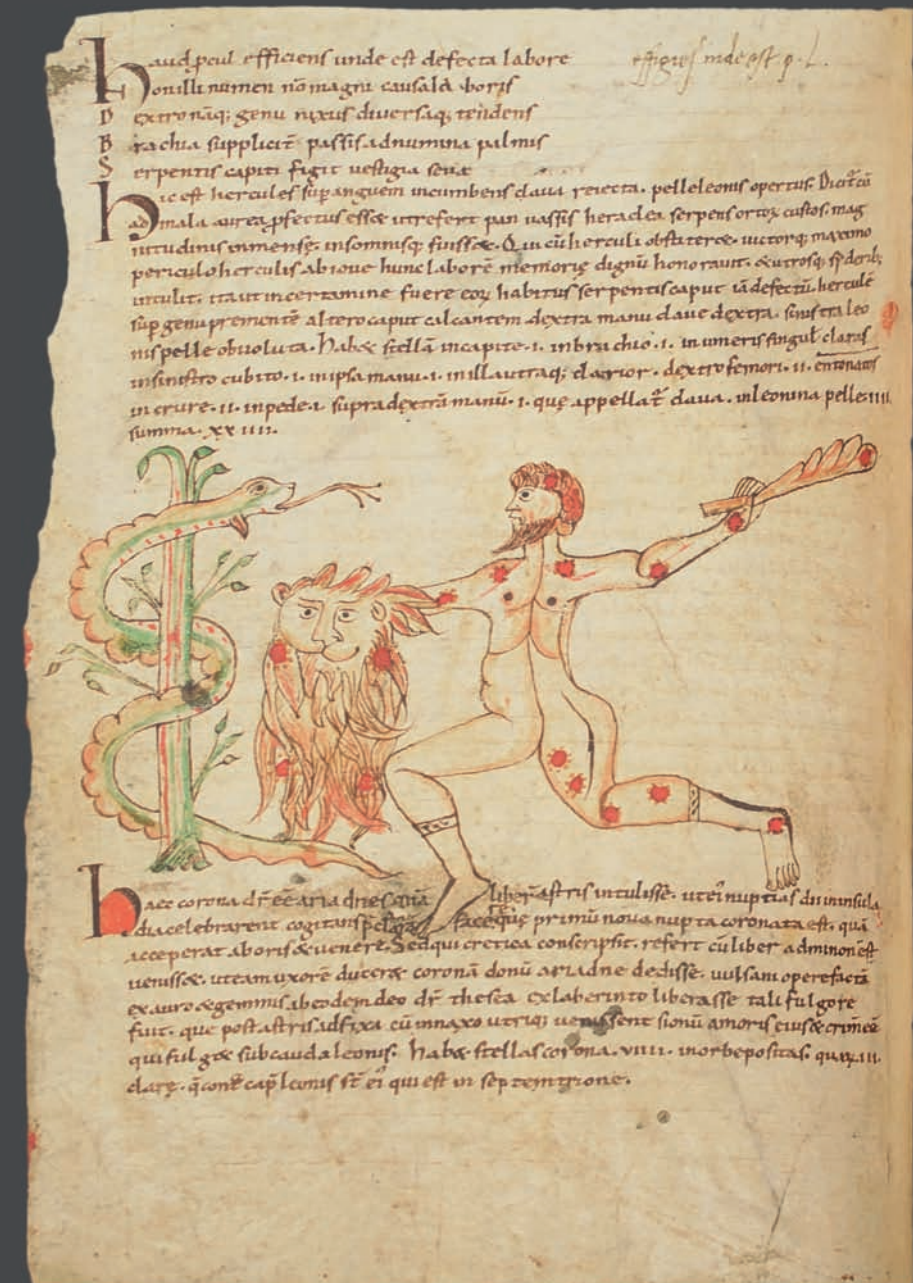 haud pcul efficiens unde est defecta labore
effigies inde est
honilli numen nō magni causalaboris
Dextro nāq; genu nixus diversaq; tendens
Brachia suppliciť passis adnumina palmis
Serpentis capiti figit vestigia seua
hic est hercules sup anguem incumbens claua reiecta. pelle leonis opertus. Dicit cū
ad mala aurea pfectus esse ut refert pan uassis heraclea serpens ortoꝝ custos. mag
nitudinis inmensę. insomnisq; fuisse. Qui cū herculi obstiteret. uictorq; maximo
periculo herculis ab ioue hunc laborē memorię dignū honorauit. & utrosq; siderib;
intulit. ita ut in certamine fuere eoꝝ habitus serpentis caput iā defectū. herculē
sup genu prementē altero caput calcantem dextra manu claue dextra. sinistra leo
nis pelle obuoluta. hab& stellā in capite .i. in brachio .i. in umeris singul claras
in sinistro cubito .i. in ipsa manu .i. in illa utraq; clarior. dextro femori .ii.
in crure .ii. in pede .i. supra dextrā manū .i. quę appellat̃ claua. in leonina pelle .iiii.
summa. xxiiii.
haec corona dr̃ eē ariadnes liber astris intulisse. ut ei nuptias dii in insula
dia celebrarent cogitans face quę primū noua nupta coronata est. quā
acceperat aboris & uenere. Sed qui cretica conscripsit. refert cū liber ad minon ēst
uenisse. ut eam uxorē ducer& coronā donū ariadne dedisse. uulcani opere factā
ex auro & gemmis ab eodem deo dr̃ thesea ex laberinto liberasse tali fulgore
fuit. que post astris adfixa cū in naxo utriq; uenissent sionū amoris eius & crimeē
qui fulg& sub cauda leonis. hab& stellas corona. viiii. in orbe positas. quaꝝ iii.
clarę. q̄ cont̄ cap̃ leonis st̄ ei qui est in septemtrione.